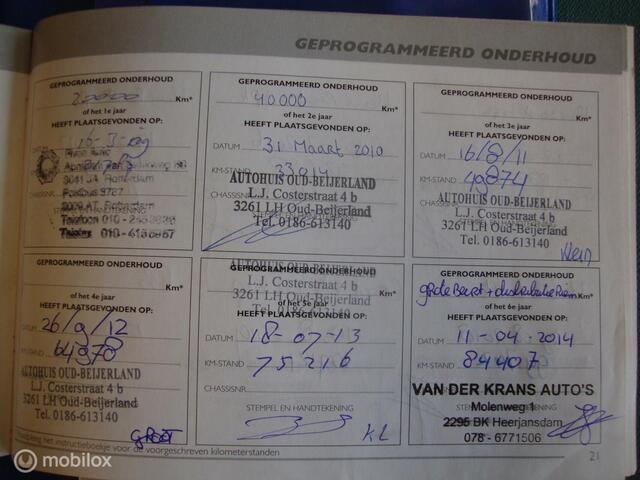 GEPROGRAMMEERD ONDERHOUD
GEPROGRAMMEERD ONDERHOUD
20000 Km*
of het 1e jaar
HEEFT PLAATSGEVONDEN OP:
Rotterdam
Postbus
Rotterdam
Telefoon 010-
GEPROGRAMMEERD ONDERHOUD
40.000 Km*
of het 2e jaar
HEEFT PLAATSGEVONDEN OP:
DATUM 31 Maart 2010
KM-STAND
AUTOHUIS OUD-BEIJERLAND
CHASSISNR.
L.J. Costerstraat 4 b
3261 LH Oud-Beijerland
Tel. 0186-613140
GEPROGRAMMEERD ONDERHOUD
Km*
of het 3e jaar
HEEFT PLAATSGEVONDEN OP:
DATUM 16/8/11
KM-STAND 49874
AUTOHUIS OUD-BEIJERLAND
L.J. Costerstraat 4 b
3261 LH Oud-Beijerland
Tel. 0186-613140
Klein
GEPROGRAMMEERD ONDERHOUD
Km*
of het 4e jaar
HEEFT PLAATSGEVONDEN OP:
26/9/12
64970
AUTOHUIS OUD-BEIJERLAND
L.J. Costerstraat 4 b
3261 LH Oud-Beijerland
Tel. 0186-613140
GROOT
GEPROGRAMMEERD ONDERHOUD
L.J. Costerstraat 4 b
3261 LH Oud-Beijerland
of het 5e jaar
HEEFT PLAATSGEVONDEN OP:
DATUM 18-07-13
KM-STAND 75216
CHASSISNR.
STEMPEL EN HANDTEKENING
KL
GEPROGRAMMEERD ONDERHOUD
grote Beurt + distributie Riem
of het 6e jaar
HEEFT PLAATSGEVONDEN OP:
DATUM 11-04-2014
KM-STAND 84407
VAN DER KRANS AUTO'S
Molenweg 1
2295 BK Heerjansdam
078-6771506
het instructieboekje voor de voorgeschreven kilometerstanden
21
mobilox